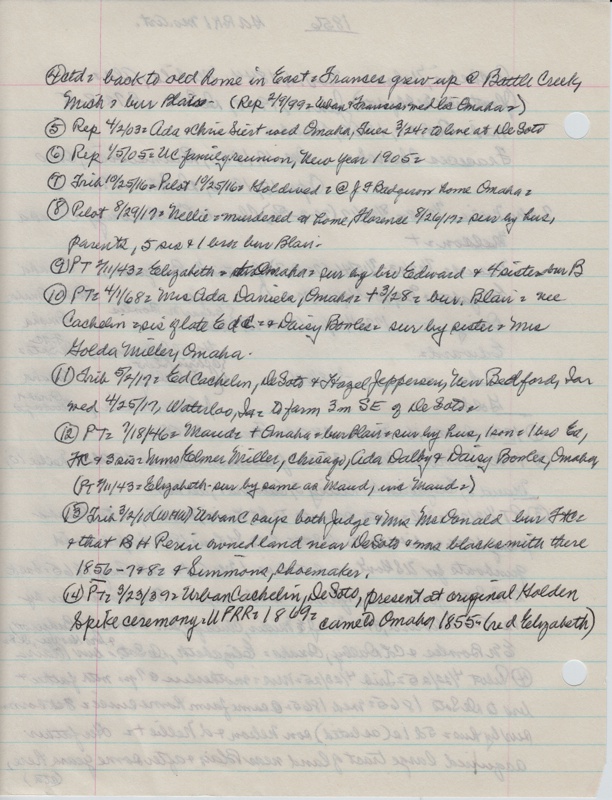 ④ctd = back to old home in East = Franses grew up @ Battle Creek,
Mich = bur Blair - (Rep 2/9/99 = Urban & Franses med Omaha =)
⑤ Rep 4/2/03 = Ada & Chris Siert wed Omaha, Tues 3/24 = to live at DeSoto
⑥ Rep 1/5/05 = UC family reunion, New Year 1905 =
⑦ Trib 10/25/16 = Pilot 10/25/16 = Golda wed = @ J F home Omaha =
⑧ Pilot 8/29/17 = Nellie = murdered at home, Florence 8/26/17 = sur by hus,
parents, 5 sis & 1 bro bur Blair -
⑨ PT 2/11/43 = Elizabeth = Omaha = sur by bro Edward & 4 sisters bur B
⑩ PT = 4/1/68 = Mrs Ada Daniels, Omaha = + 3/28 = bur. Blair = nee
Cachelin = sis of late Ed C. = & Daisy Bowles = sur by sister = Mrs
Golda Miller, Omaha.
⑪ Trib 5/2/17 = Ed Cachelin, DeSoto & Hazel Jeppersen, New Bedford, Ia
med 4/25/17, Waterloo, Ia = to farm 3m SE of DeSoto =
⑫ PT = 7/18/46 = Maud = + Omaha = bur Blair = sur by hus, 1 son = 1 bro Ed,
FC & 3 sis = Mms Elmer Miller, Chicago, Ada Dalby & Daisy Bowles, Omaha
(PT 2/11/43 = Elizabeth - sur by same as Maud, Maud =)
⑬ Trib (WHW) Urban C says both Judge & Mrs McDonald bur FC =
& that B H Perin owned land near DeSoto & blacksmith there
1856 - 7 & 8 = & Simmons, shoemaker.
⑭ PT = 3/23/39 = Urban Cachelin, DeSoto, present at original Golden
Spike ceremony = UPRR = 1869 = came to Omaha 1855 = (red Elizabeth)